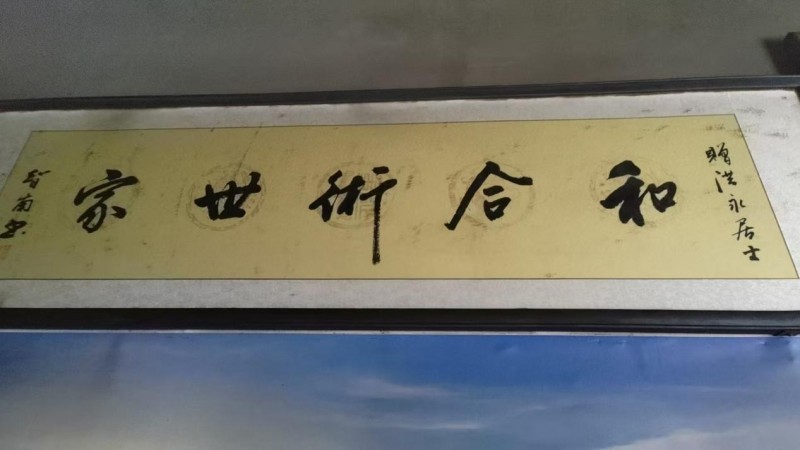 贈洪永居士
和合術世家
智蘭書